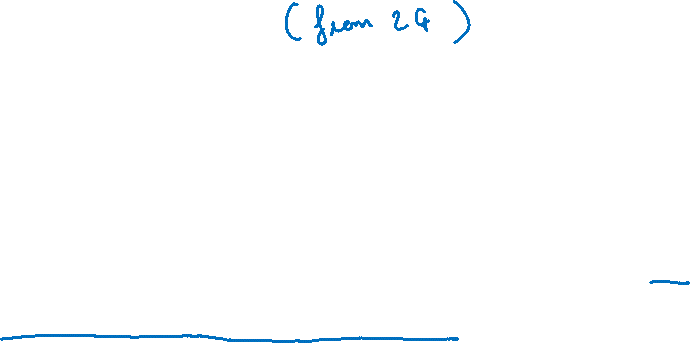 (from 2G)